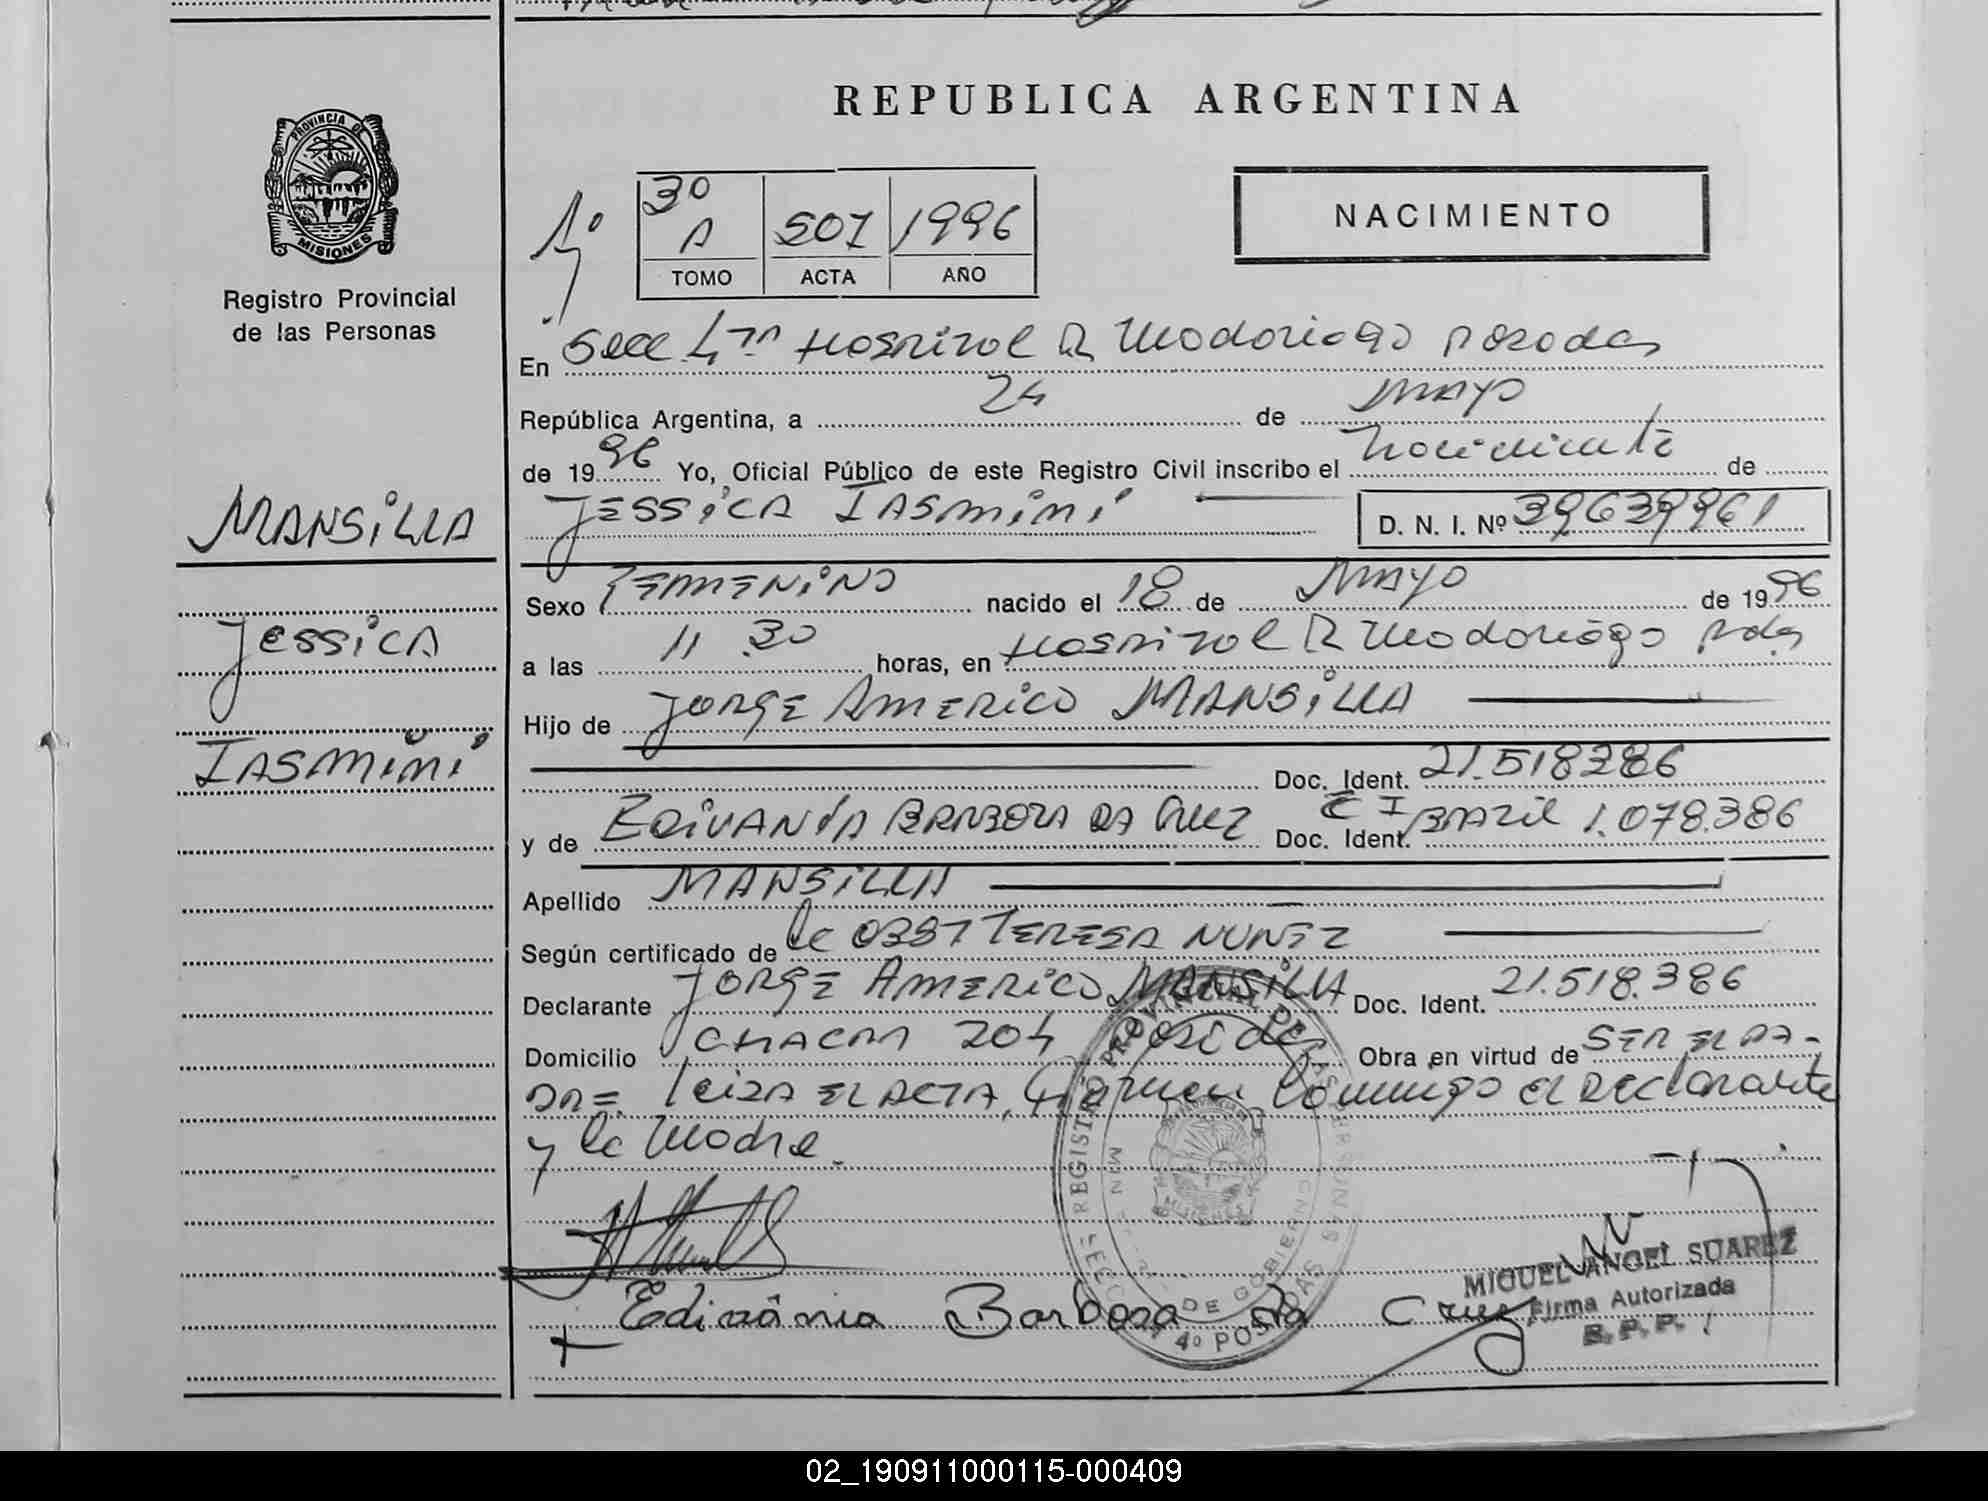 REPUBLICA ARGENTINA
PROVINCIA DE
MISIONES
Registro Provincial
de las Personas
1º
3º
A 507 1996
TOMO ACTA AÑO
NACIMIENTO
En Secc 4ta Hospital R Madariaga Posadas
República Argentina, a 24 de Mayo
de 1996 Yo, Oficial Público de este Registro Civil inscribo el Nacimiento de
JESSICA IASMINI D. N. I. Nº 39639961
MANSILLA
Jessica
IASMINI
Sexo FEMENINO nacido el 18 de Mayo de 1996
a las 11 30 horas, en Hospital R Madariaga Pdas
Hijo de Jorge Americo MANSILLA
Doc. Ident. 21.518386
y de EDIVANIA BARBOZA DA CRUZ Doc. Ident. C I BRAZIL 1.078.386
Apellido MANSILLA
Según certificado de la OBST TERESA NUNEZ
Declarante JORGE AMERICO MANSILLA Doc. Ident. 21.518.386
Domicilio CHACRA 204 Posadas Obra en virtud de SER EL PA-
DRE. Leida EL ACTA, Firman Conmigo el Declarante
y la Madre.
Edivânia Barbosa da Cruz
REGISTRO PROVINCIAL DE LAS PERSONAS
DE GOBIERNO
4º POSADAS
MIGUEL ANGEL SUAREZ
Firma Autorizada
R. P. P.
02_190911000115-000409